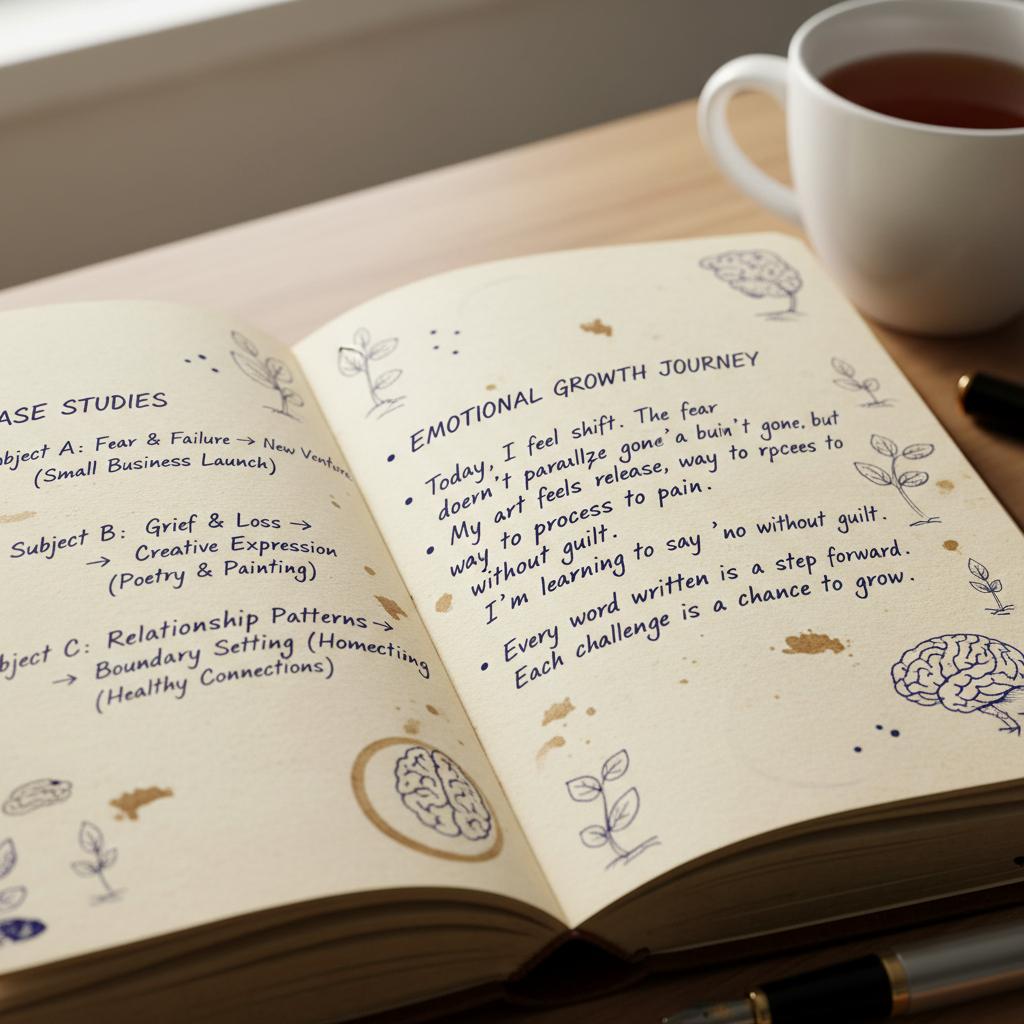 ASE STUDIES
bject A: Fear & Failure → New Venture
(Small Business Launch)
Subject B: Grief & Loss →
→ Creative Expression
(Poetry & Painting)
bject C: Relationship Patterns →
→ Boundary Setting (Homectiing
(Healthy Connections)
• EMOTIONAL GROWTH JOURNEY
• Today, I feel shift. The fear
doern't parallze gone' a buin't gone. but
• My art feels release, way to rpcees to
way to process to pain.
without guilt.
I'm learning to say 'no without guilt.
• Every word written is a step forward.
Each challenge is a chance to grow.